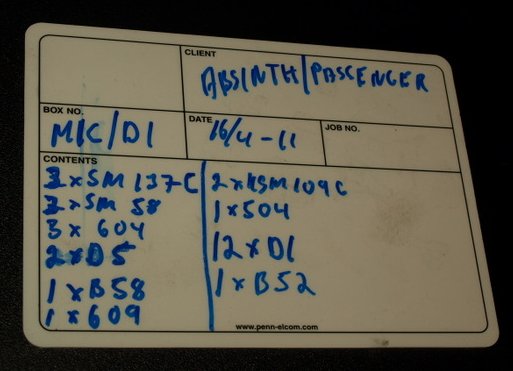 CLIENT
ABSINTH/PASCENGER
BOX NO.
MIC/DI
DATE
16/4-11
JOB NO.
CONTENTS
2xSM137-C
2xSM 58
3x 604
2xD5
1xB58
1x609
2xKSM109C
1x504
12xDI
1xB52
www.penn-elcom.com